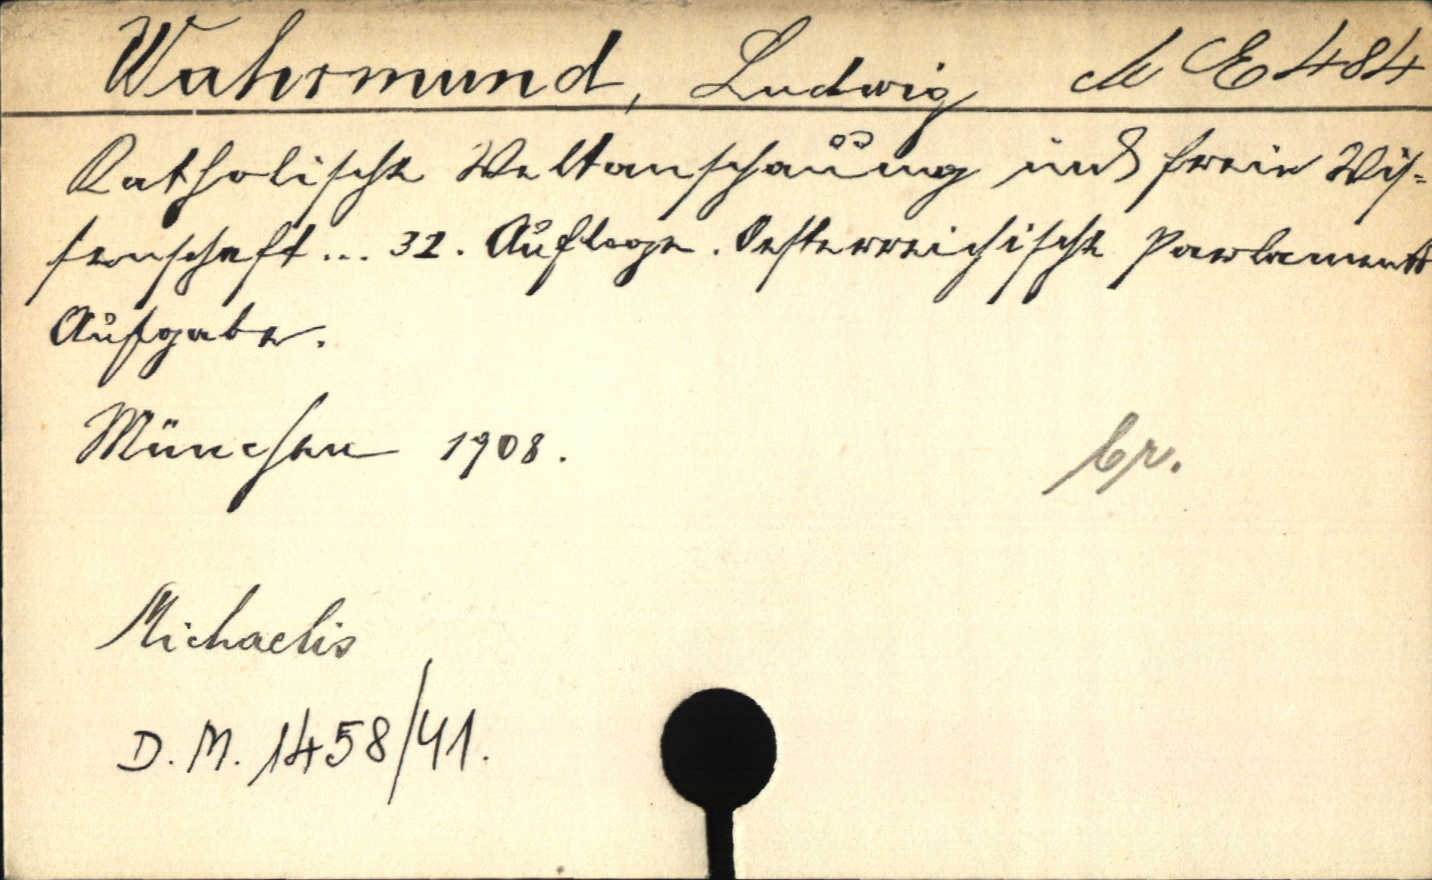 Wahrmund, Ludwig M E 484
Katholische Weltanschauung und freie Wis=
senschaft ... 32. Auflage. Oesterreichische Parlaments
Ausgabe.
München 1908.
br.
Michaelis
D. M. 1458/41.